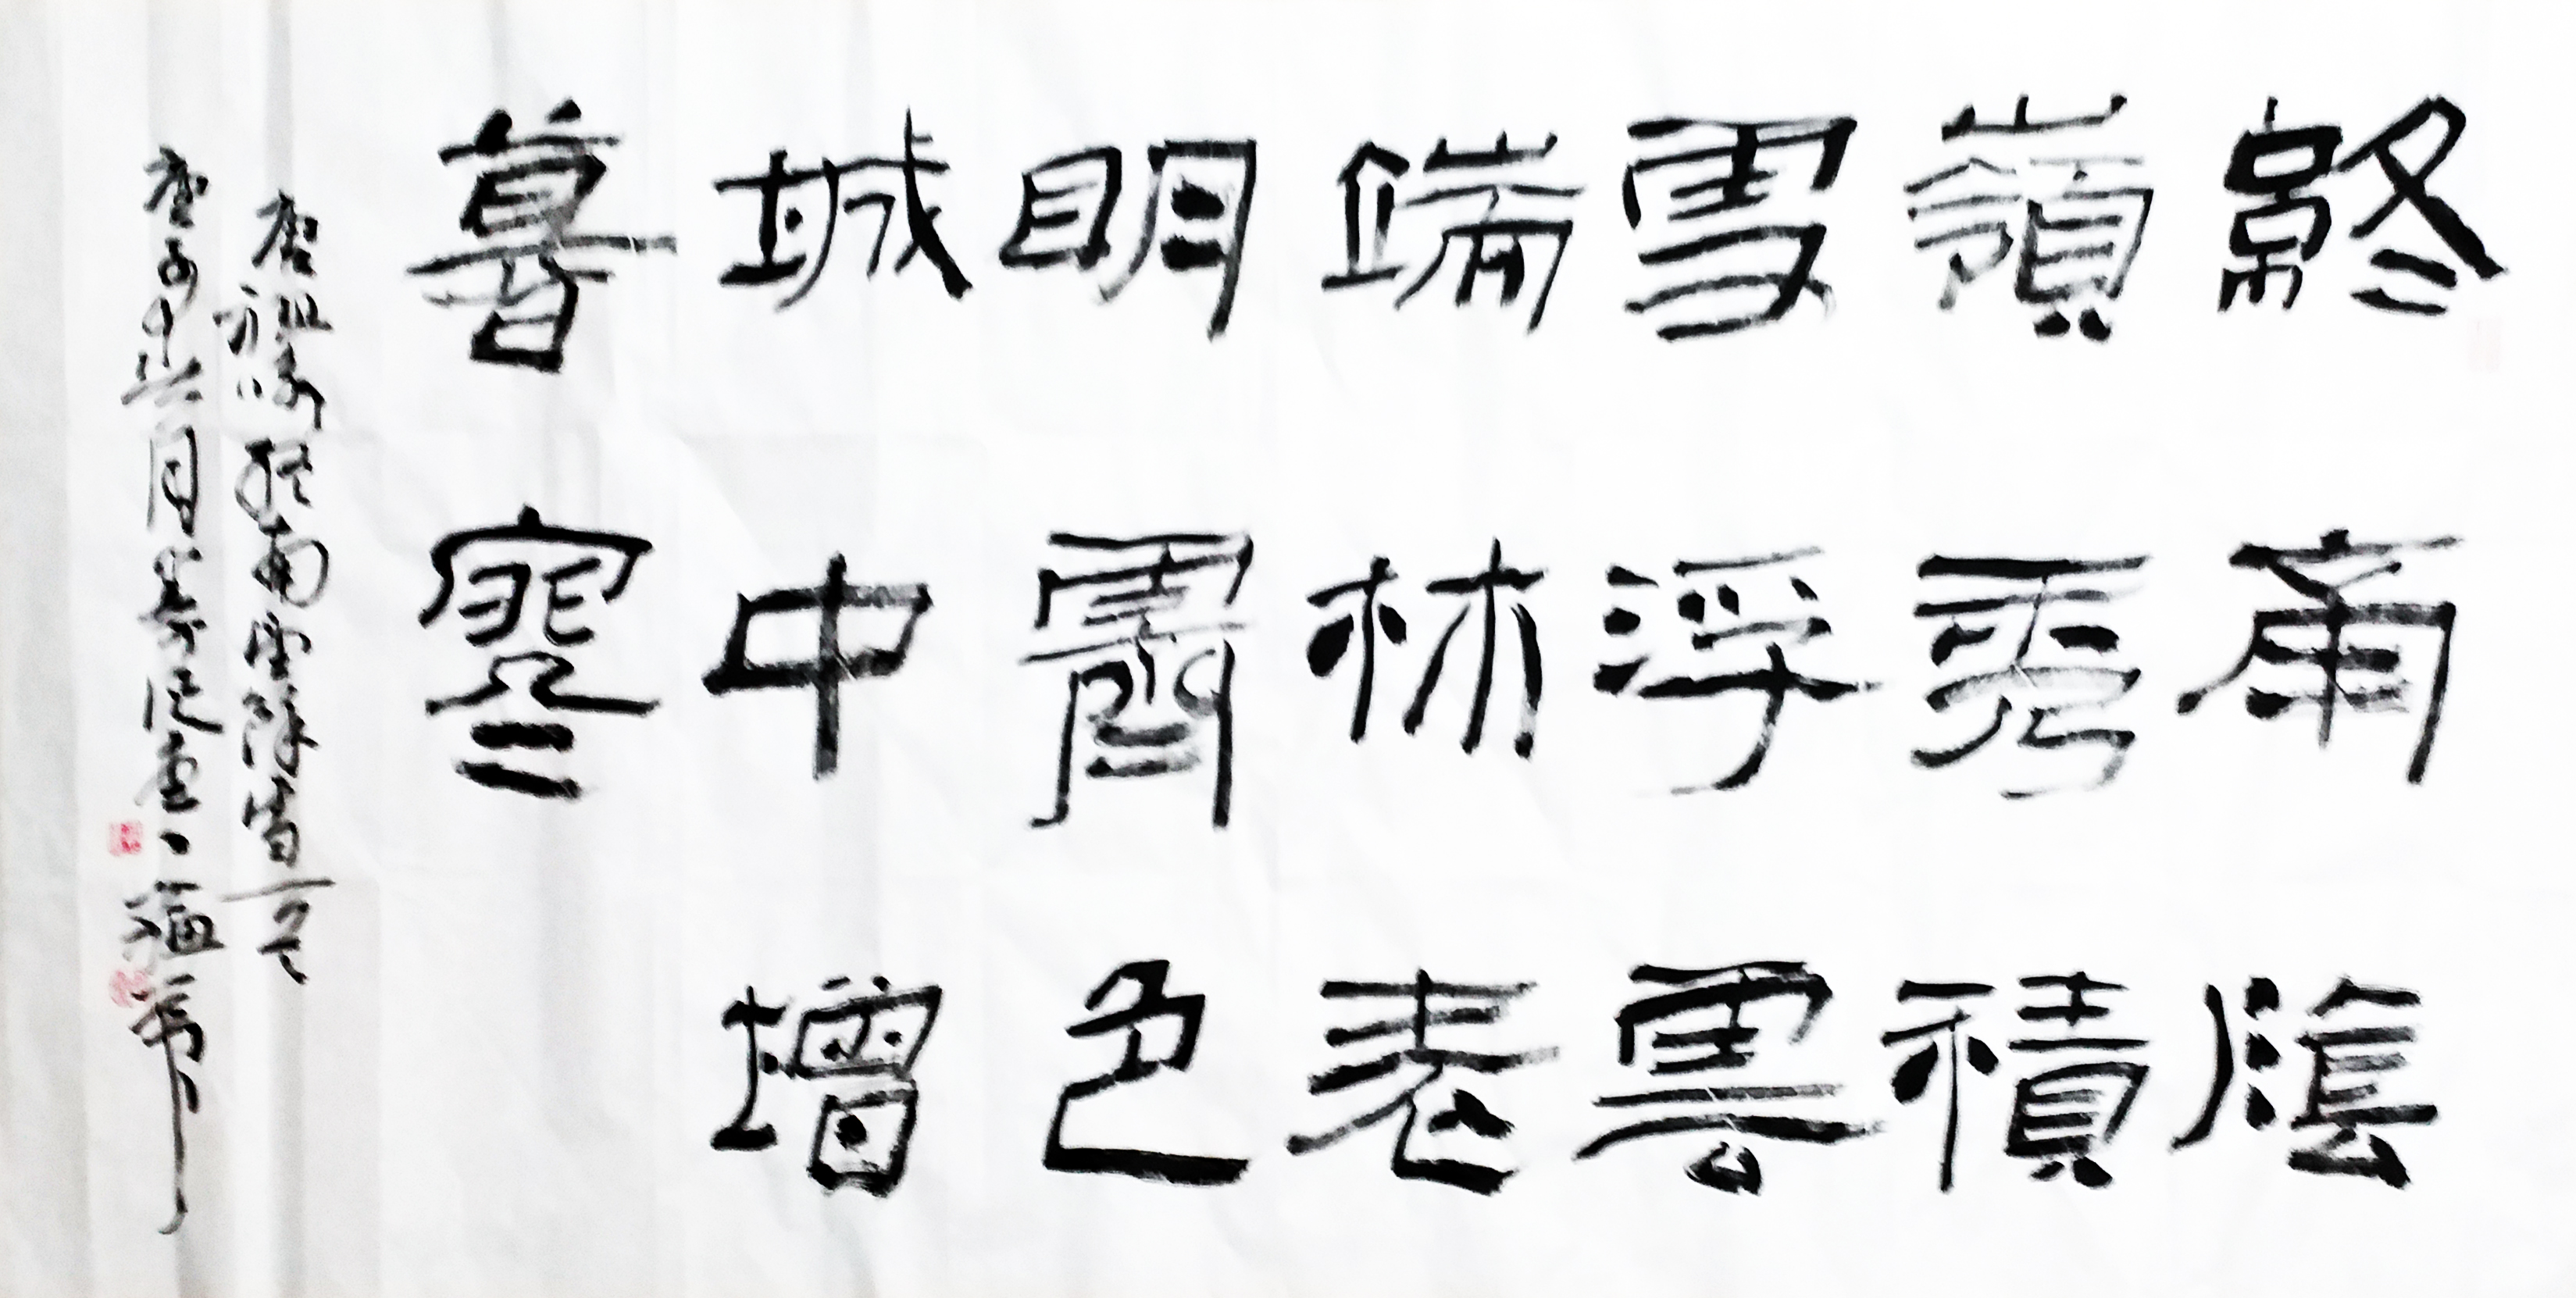 終南陰
嶺秀積
雪浮雲
端林表
明霽色
城中增
暮寒
唐祖詠終南望餘雪一首
庚子中